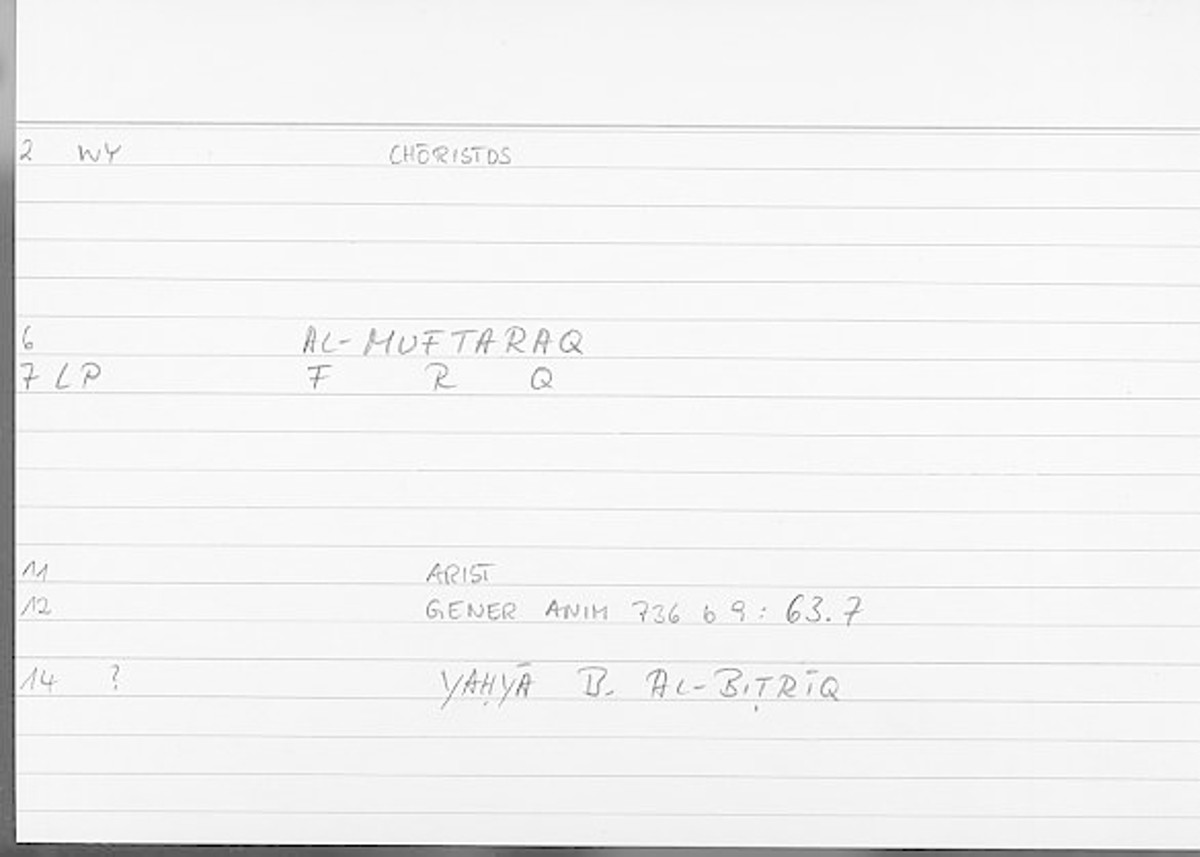 2 WY CHŌRISTOS
6 AL-MUFTARAQ
7 LP F R Q
11 ARIST
12 GENER ANIM 736 b 9: 63.7
14 ? YAḤYĀ B. AL-BIṬRĪQ